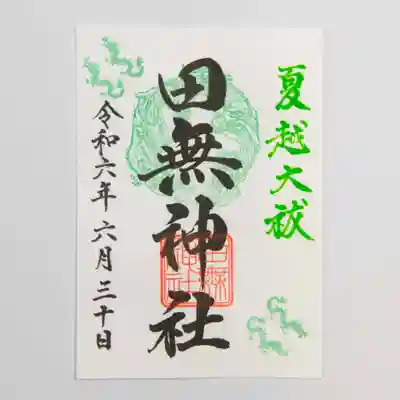 夏越大祓
田無神社
令和六年 六月三十日